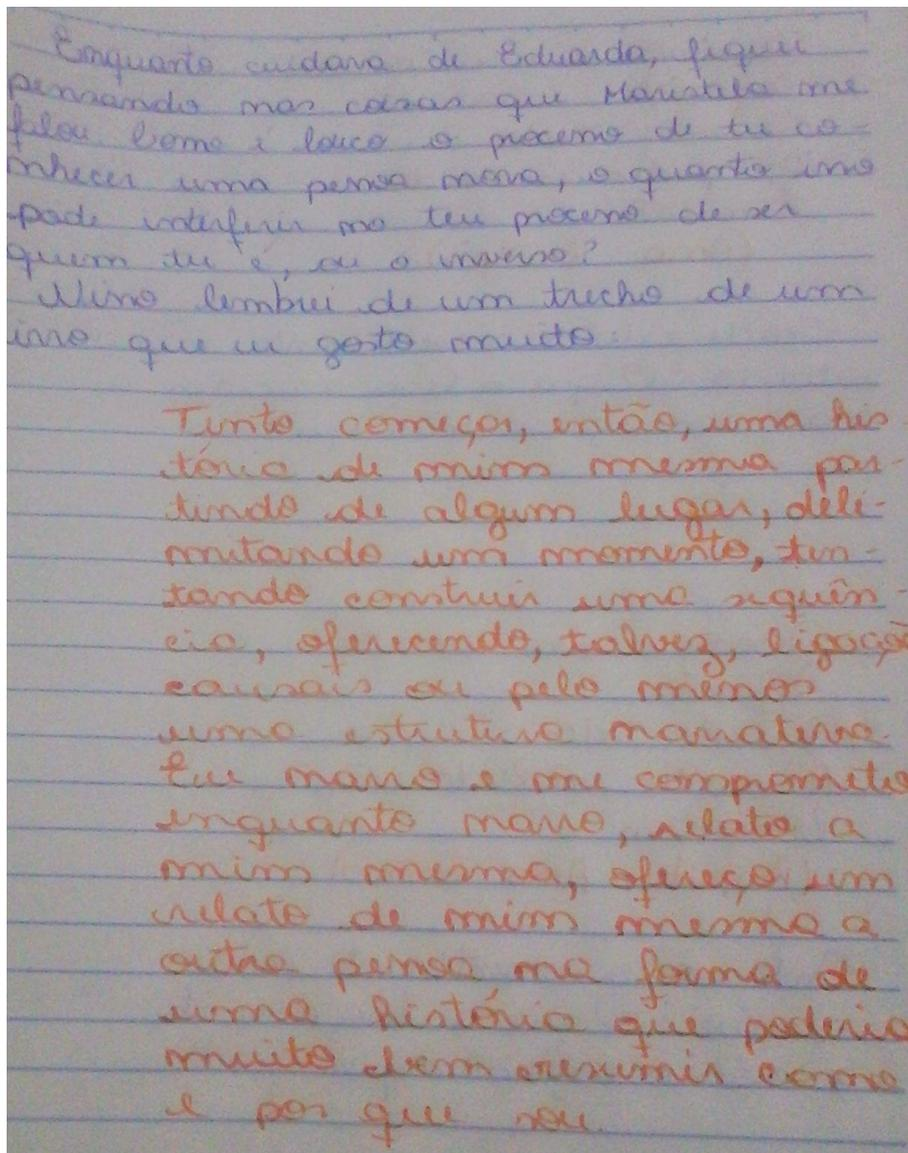 Enquanto cuidava de Eduarda, fiquei
pensando nas coisas que Maristela me
falou. Como é louco o processo de tu co-
nhecer uma pessoa nova, o quanto isso
pode interferir no teu processo de ser
quem tu é, ou o inverso?
Nisso lembrei de um trecho de um
livro que eu gosto muito:
Tento começar, então, uma his-
tória de mim mesma par-
tindo de algum lugar, deli-
mitando um momento, ten-
tando construir uma sequên-
cia, oferecendo, talvez, ligaçõe
causais ou pelo menos
uma estrutura narrativa.
Eu narro e me comprometo
enquanto narro, relato a
mim mesma, ofereço um
relato de mim mesma a
outra pessoa na forma de
uma história que poderia
muito bem resumir como
e por que sou.